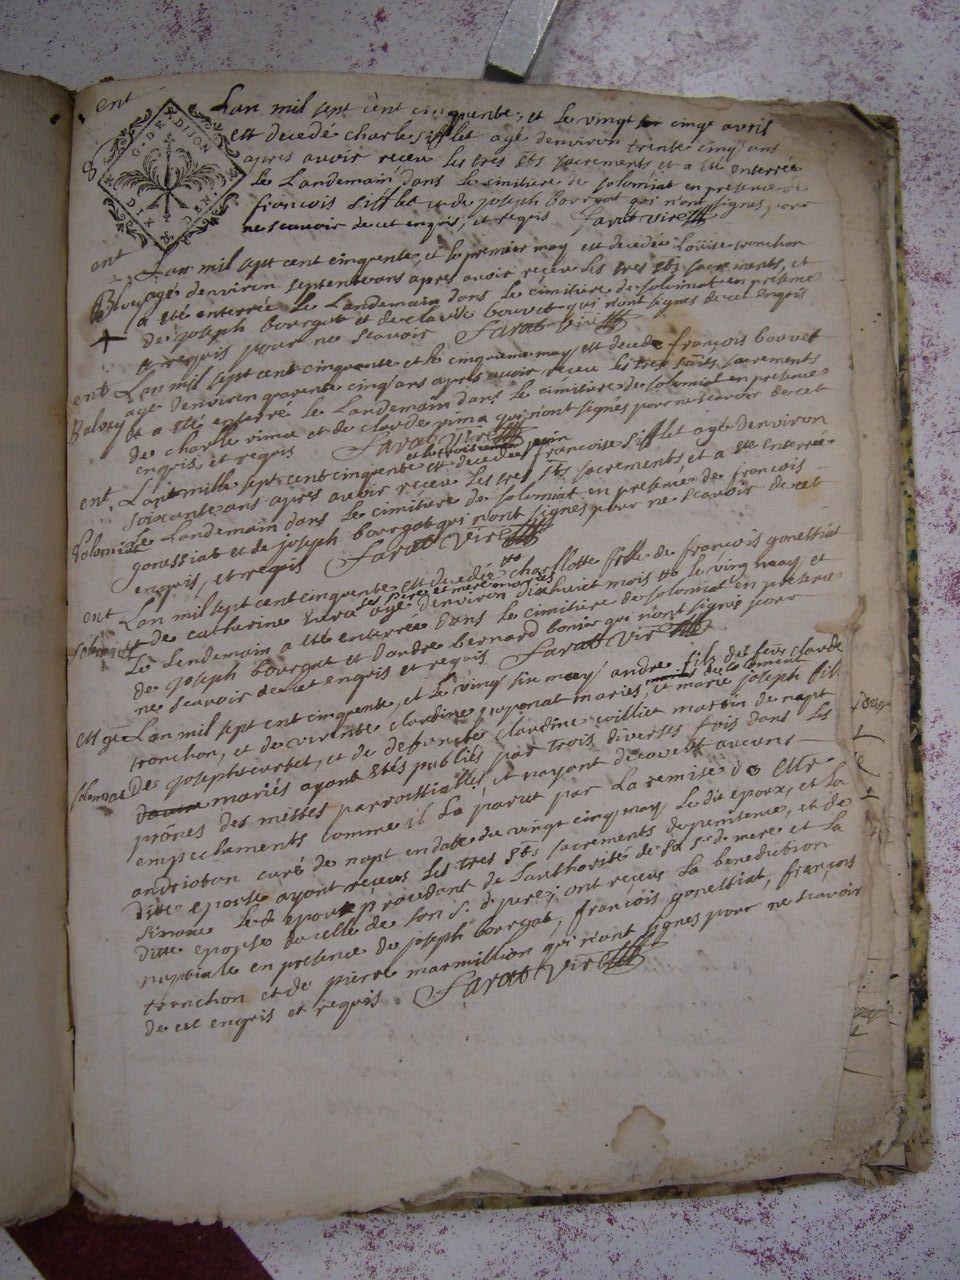 ent
G. DE DIJON
DIX DEN
Lan mil sept cent cinquante, et le vingt cinqe avril
est decedé charle sifflet agé denviron trente cinq ans
apres avoir receu les tres sts sacrements et a été enterrée
le Landemain dans le cimitiere de solomiat en présence de
françois sifflet et de joseph bourgat qui n'ont signés, pour
ne scavoir de cet enqris, et reqris farat vire
ent Lan mil sept cent cinquante, et le premier may est decedée Louise tronchon
agé denviron septente ans apres avoir receu les tres sts sacrements, et
a été enterrée le Landemain dans le cimitiere de solomiat en présence
de joseph bourgat et de claude bouvet qui n'ont signés de cet enqris
et requis pour ne scavoir farat vire
ent Lan mil sept cent cinquante et le cinquieme may est decedé françois bouvet
agé denviron quarente cinq ans apres avoir receu les tres saints sacrements
et a été enterré le Landemain dans le cimitiere de solomiat en présence
de charle vima et de claude vima qui n'ont signés pour ne scavoir de cet
enqris, et reqris farat vire
ent Lan mille sept cent cinquante est decedée françoise sifflet agé denviron
soixante ans apres avoir receu les tres sts sacrements, et a été enterrée
le Landemain dans le cimitiere de solomiat en présence de françois
gonessiat et de joseph bourgat qui n'ont signés pour ne scavoir de cet
enqris, et reqris farat vire
ent Lan mil sept cent cinquante est decedée charllotte fille de françois gonessiat
et de catherine agé denviron dixhuict mois le vingt may, et
Le Lendemain a été enterrée dans le cimitiere de solomiat en présence
de joseph bourgat et dandre bernard qui n'ont signés pour
ne scavoir de cet enqris et reqris farat vire
Lan mil sept cent cinquante, et le vingt six may andre fils de feüs claude
tronchon, et de vivente claudine mariés, et marie joseph fille
De joseph curtet, et de defuncte claudine williet de napt
mariés ayant étés publiés par trois diverses fois dans les
prônes des messes parroissialles, et nayant découvert aucuns
empechements comme il La paru par La remise de
curé de napt en date du vingt cinq may, Le dit epoux, et La
ditte epouse ayant receus Les tres sts sacrements de penitence, et de
Le d epoux procedant de Lauthorité de sa de mere et La
ditte epouse de celle de son s. pere; ont receus La benediction
nuptiale en présence de joseph bourgat, françois gonessiat, françois
tronchon et de pierre marmillion qui n'ont signés pour ne scavoir
de cet enqris et reqris farat vire